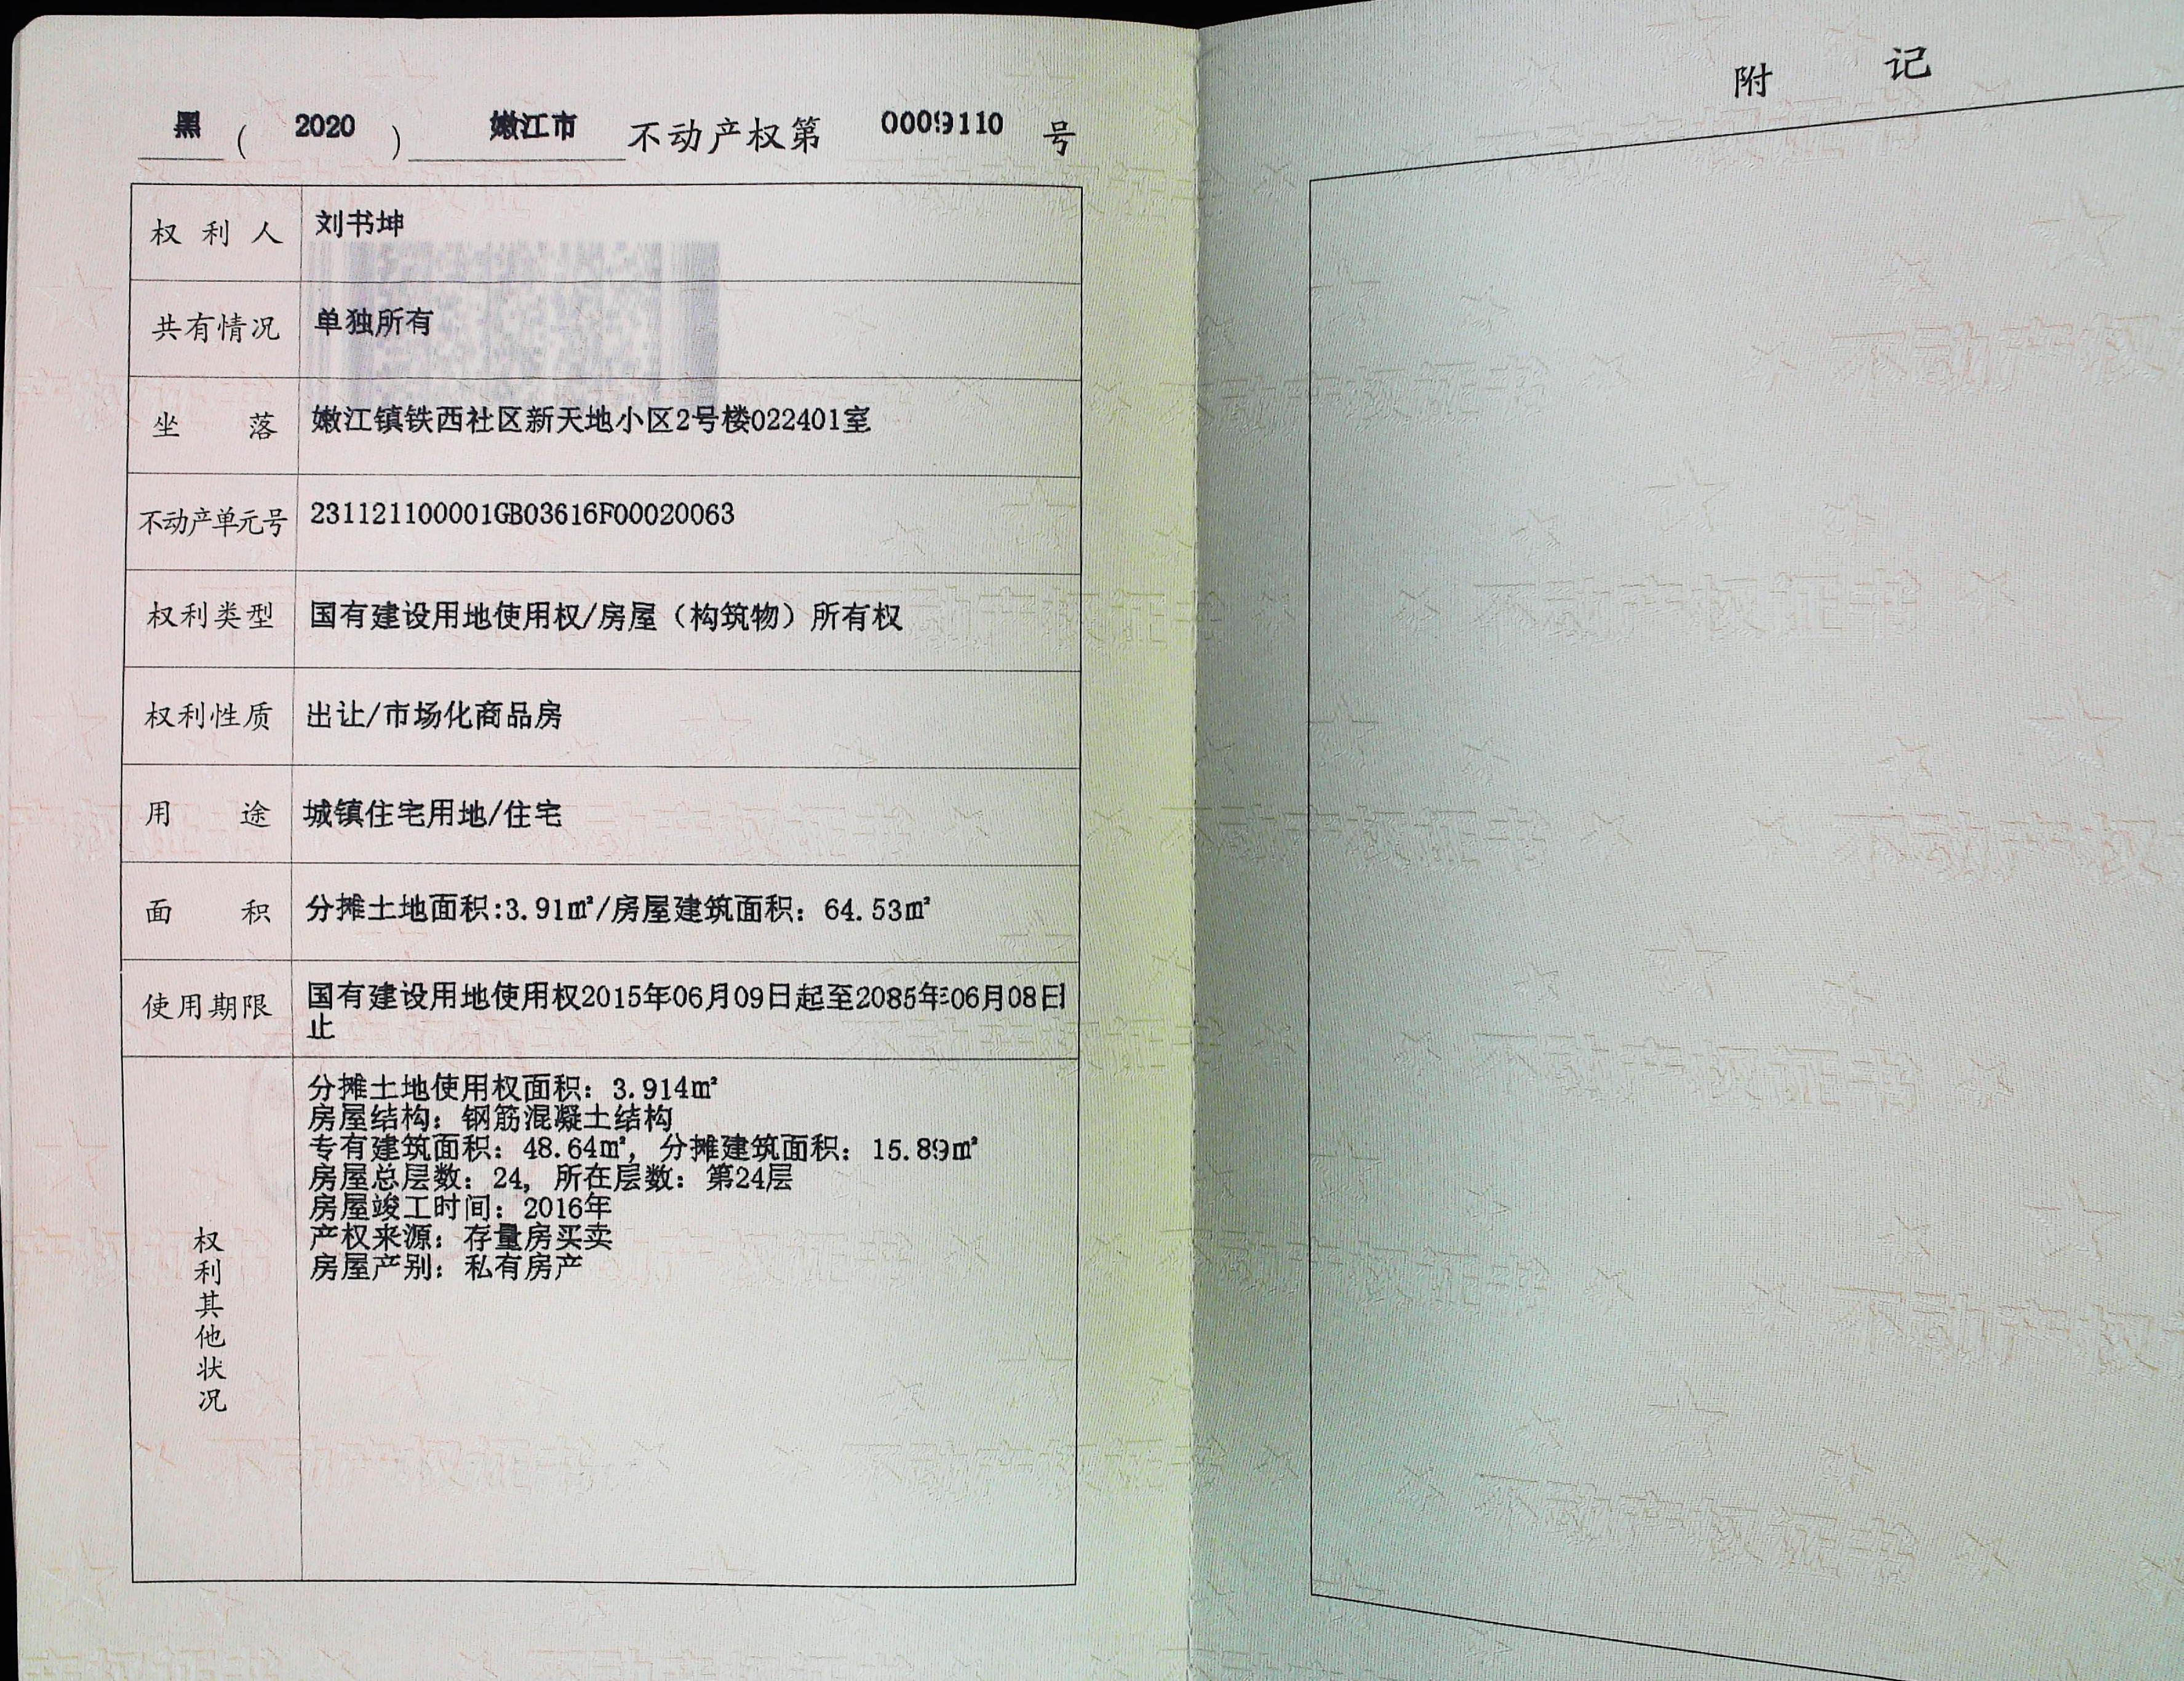 黑(2020)嫩江市不动产权第0009110号
权利人 刘书坤
共有情况 单独所有
坐落 嫩江镇铁西社区新天地小区2号楼022401室
不动产单元号 231121100001GB03616F00020063
权利类型 国有建设用地使用权/房屋（构筑物）所有权
权利性质 出让/市场化商品房
用途 城镇住宅用地/住宅
面积 分摊土地面积:3.91㎡/房屋建筑面积：64.53㎡
使用期限 国有建设用地使用权2015年06月09日起至2085年06月08日
止
权利其他状况
分摊土地使用权面积：3.914㎡
房屋结构：钢筋混凝土结构
专有建筑面积：48.64㎡，分摊建筑面积：15.89㎡
房屋总层数：24，所在层数：第24层
房屋竣工时间：2016年
产权来源：存量房买卖
房屋产别：私有房产
附记